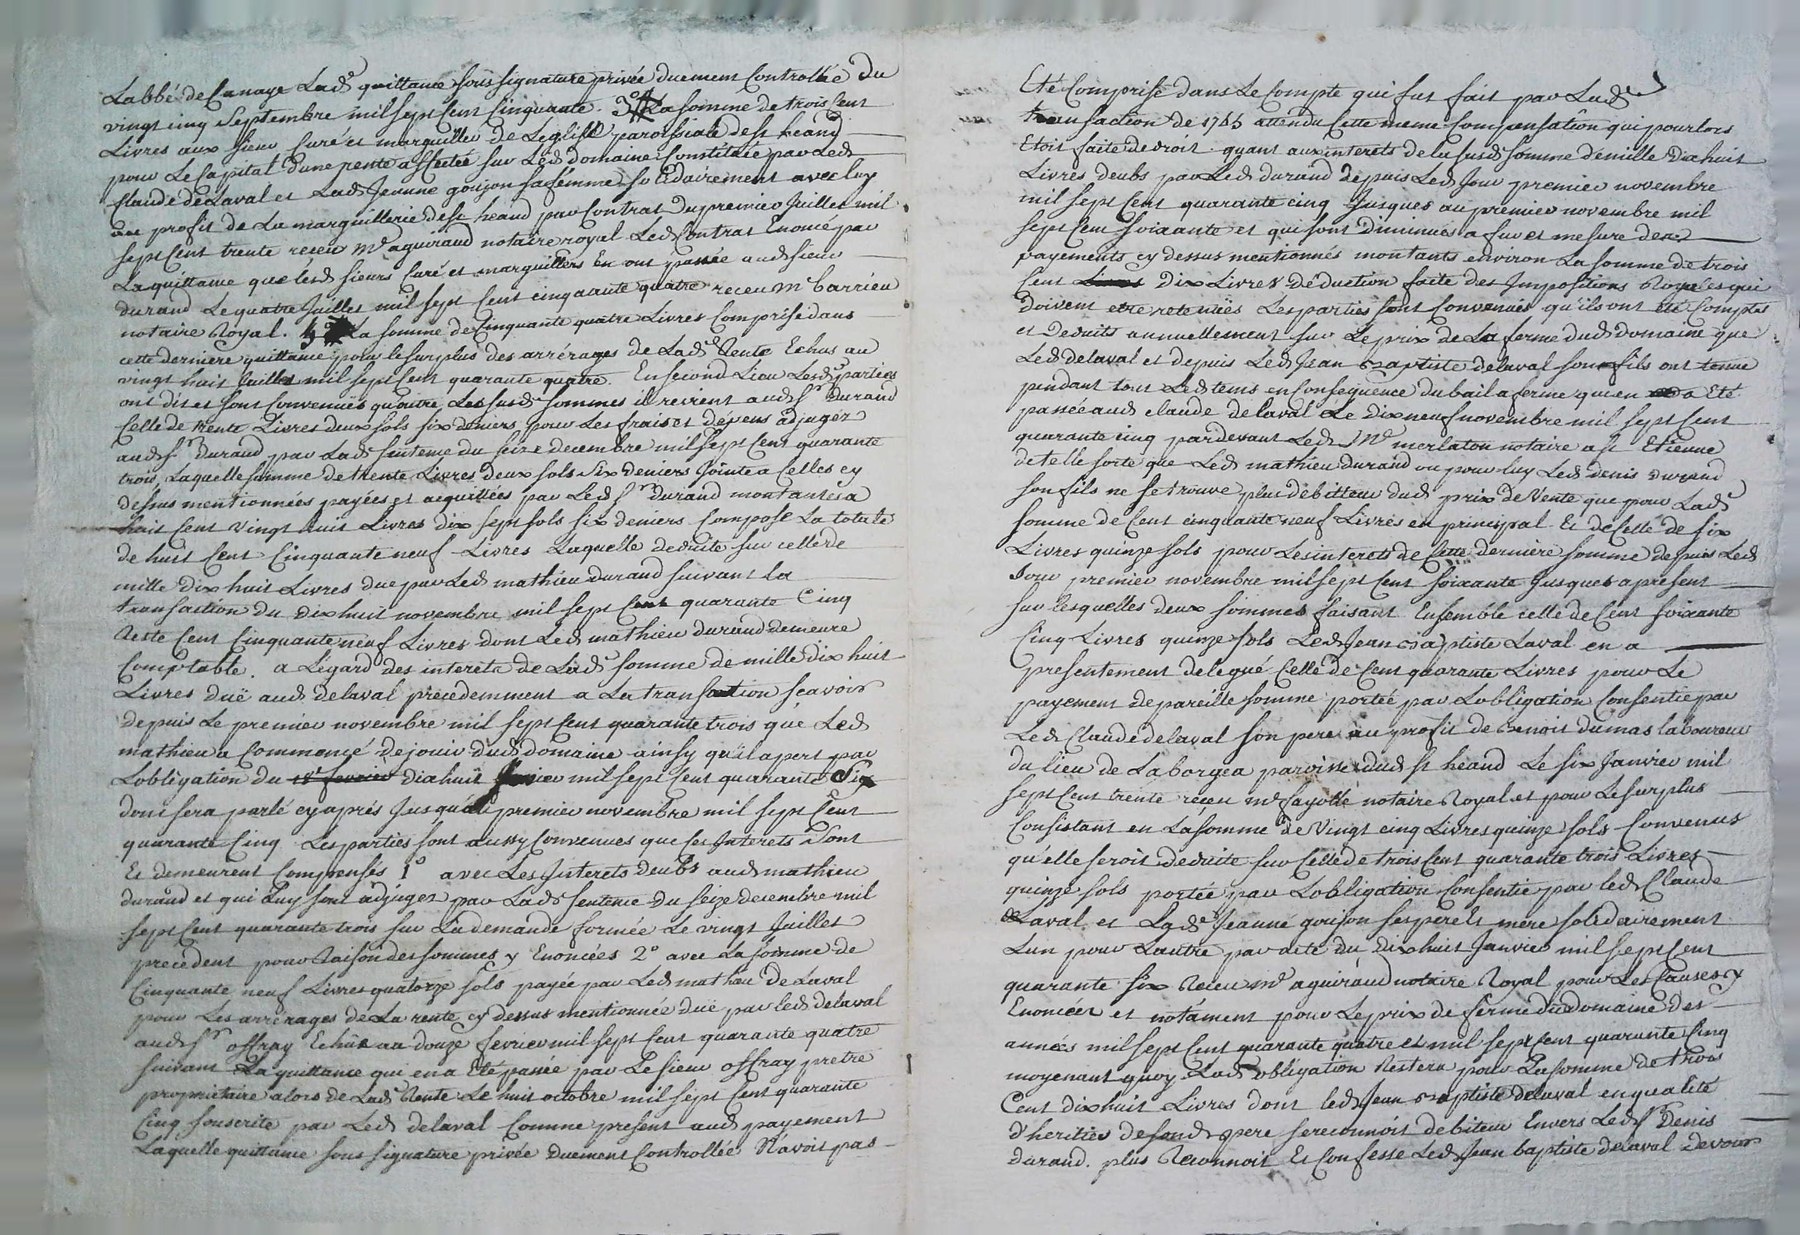 Labbé de Canaye Lad.e quittance sous signature privée duement Controllée du
vingt cinq Septembre mil sept Cent Cinquante. 3° La somme de trois Cent
Livres aux sieur Curé et marguillier de Leglise paroissiale de st heand
pour Le Capital d'une rente affectée sur Led domaine Constituée par Led
Claude de Laval et Lad. Jeanne goujon sa femme solidairement avec luy
au profit de La marguillerie de st heand par Contrat du premier Juillet mil
sept Cent trente receu Me aguiraud notaire royal Led Contrat Enoncé par
La quittance que lesd sieurs Curé et marguilliers En ont passée aud sieur
durand Le quatre Juillet mil sept Cent cinquante quatre receu Me Carrieu
notaire Royal. La somme de Cinquante quatre Livres Comprise dans
cette derniere quittance pour le surplus des arrérages de Lad.e Rente Echus au
vingt huit Juillet mil sept Cent quarante quatre. En second Lieu Lesd parties
ont dit et sont Convenues qu'outre Les susd sommes il revient aud Sr Durand
Celle de trente Livres deux sols six deniers pour Les frais et dépens adjugez
aud Sr Durand par Lad Sentence du seize decembre mil sept Cent quarante
trois Laquelle somme de trente Livres deux sols six deniers Jointe a Celles cy
dessus mentionnées payées et acquittées par Led Sr Durand montantes a
huit Cent vingt huit Livres dix sept sols six deniers Compose La totale
de huit Cent Cinquante neuf Livres Laquelle deduite sur celle de
mille dix huit Livres due par Led mathieu durand suivant la
transaction du dix huit novembre mil sept Cent quarante Cinq
Reste Cent Cinquante neuf Livres dont Led mathieu durand demeure
Comptable. a Légard des interets de Lad.e somme de mille dix huit
Livres duë aud delaval précédemment a La transaction sçavoir
depuis Le premier novembre mil sept Cent quarante trois que Led
mathieu a Commencé de jouir dud domaine ainsy qu'il apert par
Lobligation du 18e fevrier dix huit mil sept Cent quarante Six
dont sera parlé cy après Jusqu'au premier novembre mil sept Cent
quarante Cinq Les parties sont aussy Convenues que ces Interets sont
Et demeurent Compensés 1° avec Les Interets deubs aud mathieu
durand et qui Luy sont adjugez par Lad Sentence du Seize decembre mil
sept Cent quarante trois sur La demande formée Le vingt Juillet
precedent pour Raison des sommes y Enoncées 2° avec La somme de
Cinquante neuf Livres quatorze sols payée par Led mathieu de Laval
pour Les arrérages de La rente cy dessus mentionnée duë par led delaval
aud Sr offray Echûs au douze fevrier mil sept Cent quarante quatre
suivant La quittance qui en a Eté passée par Le sieur offray pretre
propriétaire alors de Lad. Rente Le huit octobre mil sept Cent quarante
Cinq souscrite par Led delaval Comme présent aud payement
Laquelle quittance sous signature privée Duement Controllée N'avoit pas
Eté Comprise dans Le Compte qui fut fait par Lad.e
transaction de 1745 attendu Cette meme Compensation qui pour lors
Etoit faite de droit. quant aux interets de la susd somme de mille dix huit
Livres deubs par Led durand depuis Led Jour premier novembre
mil sept Cent quarante cinq Jusques au premier novembre mil
sept Cent soixante et qui sont Diminués a fur et mesure des
payements cy dessus mentionnés montants environ La somme de trois
Cent dix Livres déduction faite des Impositions Royales qui
doivent etre retenües Les parties sont Convenues qu'ils ont été Comptés
et Deduits annuellement sur Le prix de La ferme dud domaine que
Led delaval et depuis Led Jean Baptiste delaval son fils ont tenue
pendant tout Led tems en Conséquence du bail a ferme qui en a Eté
passé aud claude delaval Le dix neuf novembre mil sept Cent
quarante cinq pardevant Led Me merlaton notaire a st Etienne
de telle sorte que Led mathieu durand ou pour luy Led denis durand
son fils ne se trouve plus débitteur dud prix de Vente que pour Lad.
somme de Cent cinquante neuf Livres en principal Et de Celle de six
Livres quinze sols pour Les interets de Cette derniere somme depuis Led
Jour premier novembre mil sept Cent soixante Jusques a présent
sur lesquelles deux sommes faisant Ensemble celle de Cent soixante
Cinq Livres quinze sols Led Jean Baptiste Laval en a
presentement delegué Celle de Cent quarante Livres pour Le
payement de pareille somme portée par Lobligation Consentie par
Led Claude delaval son pere au profit de Benoit dumas laboureur
du lieu de Laborgea paroisse dud st heand Le six Janvier mil
sept Cent trente reçeu Me fayolle notaire Royal et pour Le surplus
Consistant en La somme de Vingt cinq Livres quinze sols Convenus
qu'elle seroit deduite sur Celle de trois Cent quarante trois Livres
quinze sols portée par Lobligation Consentie par led Claude
Laval et Lad.e Jeanne goujon ses pere Et mere solidairement
Lun pour Lautre par acte du dix huit Janvier mil sept Cent
quarante six Receu Me aguiraud notaire Royal pour Les Causes y
Enoncées et notament pour Le prix de ferme du domaine des
années mil sept Cent quarante quatre et mil sept Cent quarante Cinq
moyenant quoy Lad obligation Restera pour La somme de trois
Cent dix huit Livres dont led Jean Baptiste delaval en qualité
d'heritier de sond pere se reconnoit débiteur Envers Led Sr Denis
durand. plus Reconnoit Et Confesse Led Jean baptiste delaval devoir